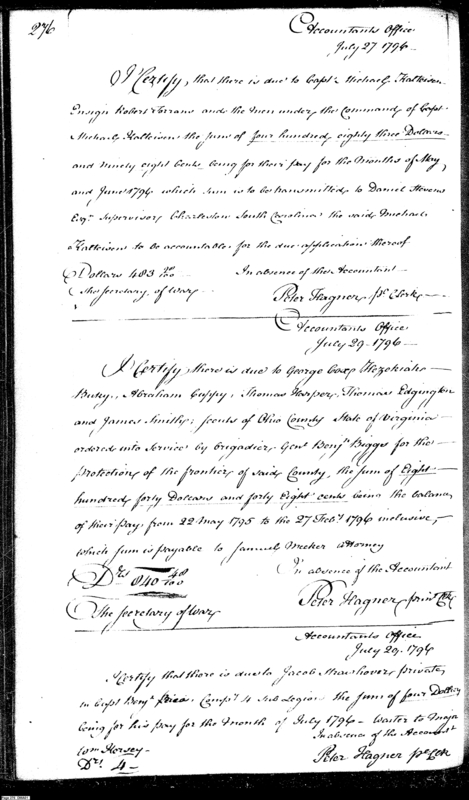 276
Accountants Office
July 27 1796
I Certify, that there is due to Capt. Michael Kalteisen
Ensign Robert Farrans and the men under the Command of Capt.
Michael Kalteisen the sum of four hundred eighty three Dollars
and ninety eight Cents being for their pay for the Months of May,
and June 1796 which sum is to be transmitted to Daniel Stevens
Esqr. Supervisor, Charleston South Carolina the said Michael
Kalteisen to be accountable for the due application thereof
Dollars 483 98/100
In absence of the Accountant
The Secretary of War
Peter Hagner, pr. Clerk
Accountants Office
July 29 1796
I Certify there is due to George Cox, Hezekiah
Abraham Thomas Harper, Thomas Edgington
and James Smith; scouts of Ohio County State of Virginia
ordered into service by brigadier Genl. Benjn. Biggs for the
protection of the frontier of said County, the sum of Eight
hundred forty Dollars and forty Eight cents being the balance
of their pay from 22 May 1795 to the 27 Feby. 1796 inclusive,
which sum is payable to Samuel Meeker attorney
In absence of the Accountant
Drs 840 48/100
Peter Hagner
The Secretary of War
Accountants Office
July 29. 1796
I Certify that there is due to Jacob private
in Capt Benjn. Price Compy. 4 Sub Legion the sum of four Dollars
being for his pay for the month of July 1796 Waiter to Major
In absence of the Accountant
Drs 4
Peter Hagner